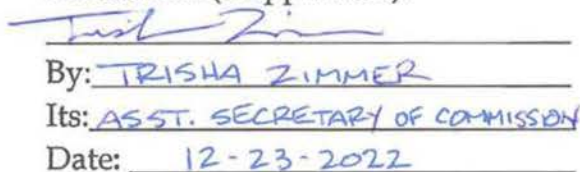 By: TRISHA ZIMMER
Its: ASST. SECRETARY OF COMMISSION
Date: 12-23-2022